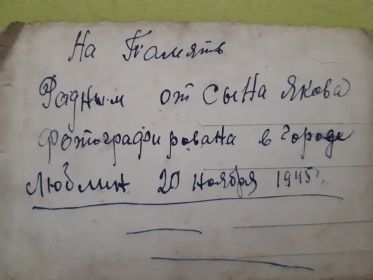 На Память
Радным от сына Якова
фотографирована в городе
Люблин 20 ноября 1945 г.